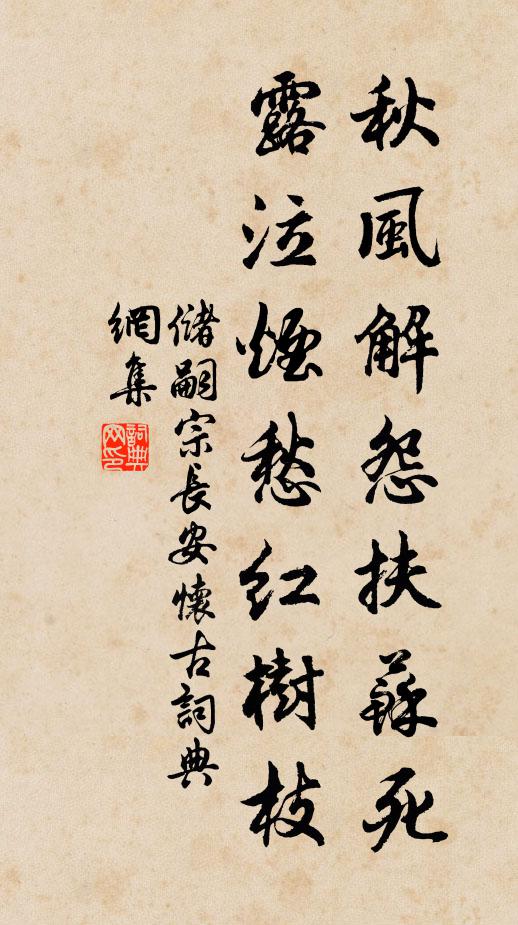 秋風解怨扶蘇死
露泣煙愁紅樹枝
儲嗣宗長安懷古詞典
網集
詞典網印